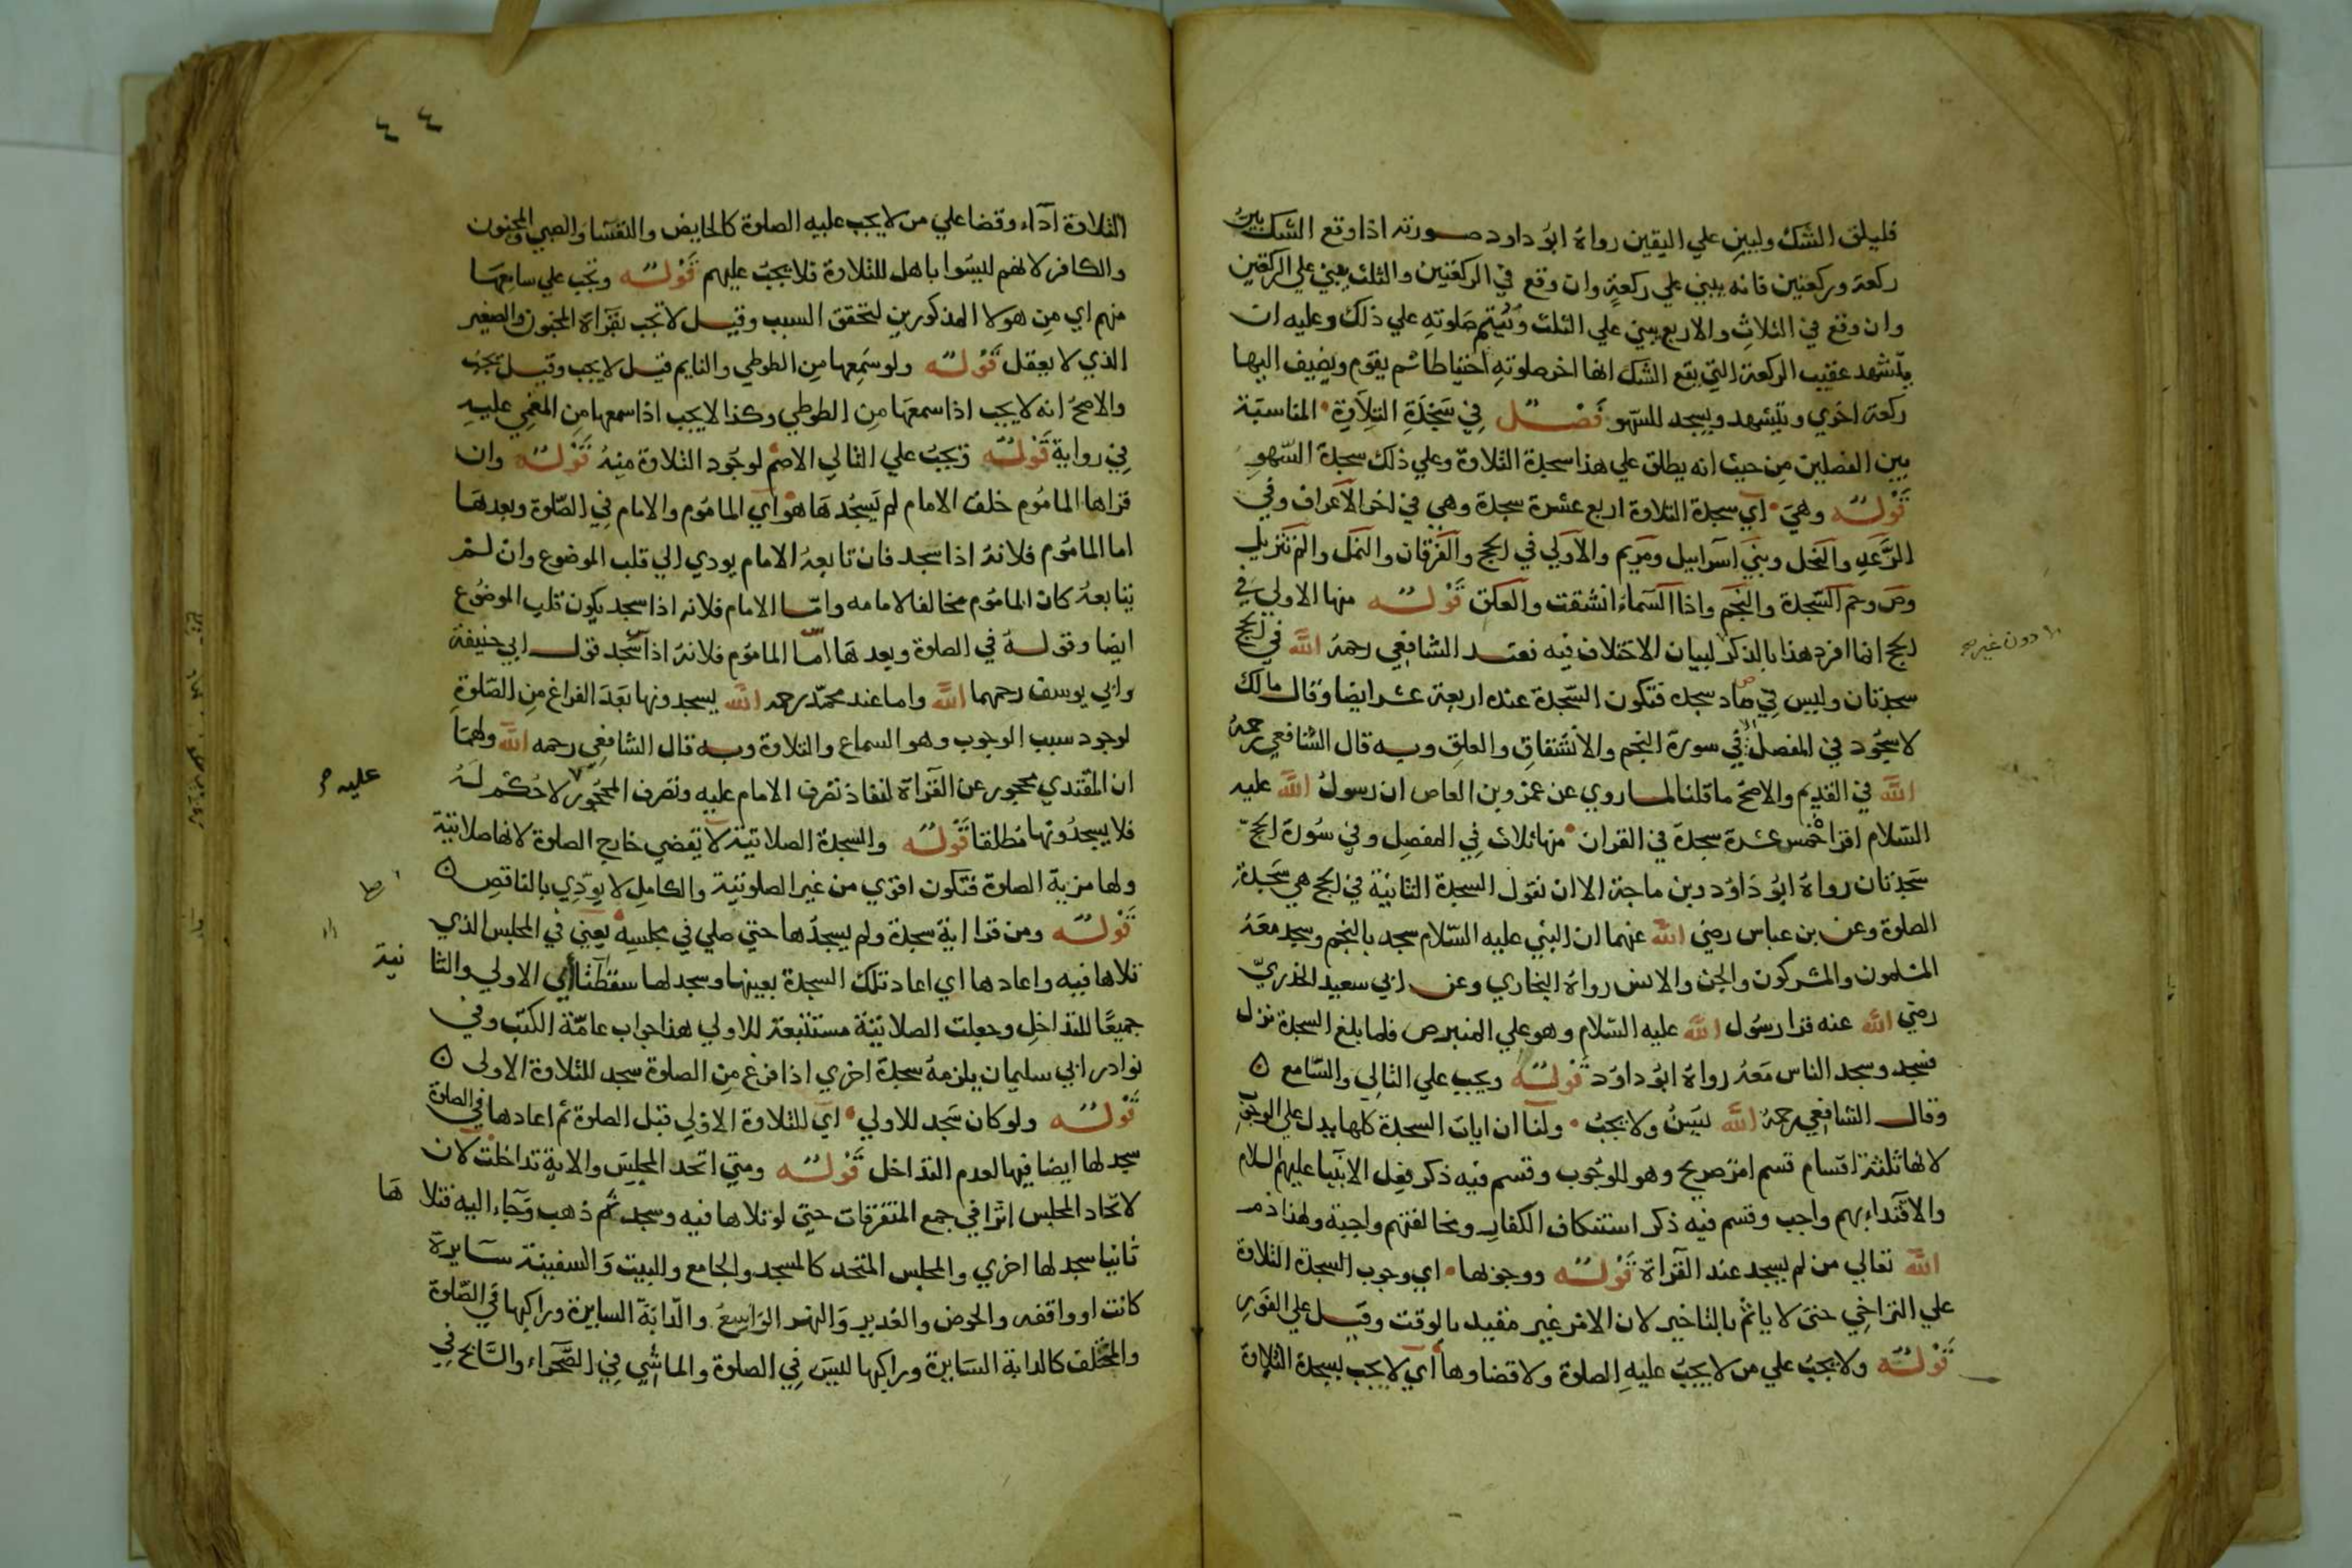 فليلق الشك وليبن علي اليقين رواه ابو داود صورته اذا وقع الشك بين
ركعة وركعتين فانه يبني علي ركعة وان وقع في الركعتين والثلث يبني علي الركعتين
وان وقع في الثلاث والاربع يبني علي الثلث ويتم صلوته علي ذلك وعليه ان
يتشهد عقيب الركعة التي يقع الشك انها اخر صلوته احتياطا ثم يقوم ويضيف اليها
ركعة اخري ويتشهد ويسجد للسهو فصل في سجدة التلاوة المناسبة
بين الفصلين من حيث انه يطلق علي هذا سجدة التلاوة وعلي ذلك سجدة السهو
قوله وهي اي سجدة التلاوة اربع عشرة سجدة وهي في اخر الاعراف وفي
الرعد والنحل وبني اسرايل ومريم والاولي في الحج والفرقان والنمل والم تنزيل
وص وحم السجدة والنجم واذا السماء انشقت والعلق قوله منها الاولي في
الحج انما افرد هذا بالذكر لبيان الاختلاف فيه فعند الشافعي رحمه الله في الحج
دون غيره
سجدتان وليس في صاد سجده فتكون السجدة عنده اربعة عشر ايضا وقال مالك
لا سجود في المفصل في سورة النجم والانشقاق والعلق وبه قال الشافعي رحمه
الله في القديم والاصح ما قلنا لما روي عن عمرو بن العاص ان رسول الله عليه
السلام اقرا خمس عشرة سجدة في القران منها ثلاث في المفصل وفي سورة الحج
سجدتان رواه ابو داود وبن ماجة الا ان نقول السجدة الثانية في الحج هي سجدة
الصلوة وعن بن عباس رضي الله عنهما ان النبي عليه السلام سجد بالنجم وسجد معه
المسلمون والمشركون والجن والانس رواه البخاري وعن ابي سعيد الخذري
رضي الله عنه قرا رسول الله عليه السلام وهو علي المنبر ص فلما بلغ السجدة نزل
فسجد وسجد الناس معه رواه ابو داود قوله ويجب علي التالي والسامع
وقال الشافعي رحمه الله ليسن ولا يجب ولنا ان ايات السجدة كلها يدل علي الوجوب
لانها ثلثة اقسام قسم امر صريح وهو للوجوب وقسم فيه ذكر فعل الانبيا عليهم السلام
والاقتداء بهم واجب وقسم فيه ذكر استنكاف الكفار ومخالفتهم واجبة ولهذا ذم
الله تعالي من لم يسجد عند القراة قوله ووجوبها اي وجوب السجدة التلاوة
علي التراخي حتي لا ياثم بالتاخير لان الامر غير مقيد بالوقت وقيل علي الفور
قوله ولا يجب علي من لا يجب عليه الصلوة ولا قضاوها اي لا يجب لسجدة التلاوة
٤٤
التلاوة اداء وقضا علي من لا يجب عليه الصلوة كالحايض والنفسا والصبي والمجنون
والكافر لانهم ليسوا باهل للتلاوة فلا يجب عليهم قوله وتجب علي سامعها
منهم اي من هولا المذكورين لتحقق السبب وقيل لا تجب بقراة المجنون والصغير
الذي لا يعقل قوله ولو سمعها من الطوطي والنايم قيل لا يجب وقيل يجب
والاصح انه لا يجب اذا سمعها من الطوطي وكذا لا يجب اذا سمعها من المغمي عليه
في رواية قوله وتجب علي التالي الاصم لوجود التلاوة منه قوله وان
قراها الماموم خلف الامام لم يسجدها هو اي الماموم والامام في الصلوة وبعدها
اما الماموم فلانه اذا سجد فان تابعه الامام يودي الي قلب الموضوع وان لم
يتابعه كان الماموم مخالفا لامامه واما الامام فلانه اذا سجد يكون قلب الموضوع
ايضا وقوله في الصلوة وبعدها اما الماموم فلانه اذا سجد قول ابي حنيفة
وابي يوسف رحمهما الله واما عند محمد رحمه الله يسجدونها بعد الفراغ من الصلوة
لوجود سبب الوجوب وهو السماع والتلاوة وبه قال الشافعي رحمه الله ولهما
ان المقتدي محجور عن القراة لنفاذ تصرف الامام عليه وتصرف المحجور لا حكم له
عليه
فلا يسجدونها مطلقا قوله والسجدة الصلاتية لا تقضي خارج الصلوة لانها صلاتية
ولها مزية الصلوة فتكون اقوي من غير الصلوتية والكامل لا يودي بالناقص
قوله ومن قرا اية سجدة ولم يسجدها حتي صلي في مجلسه يعني في المجلس الذي
تلاها فيه واعادها اي اعاد تلك السجدة بعينها وسجد لها سقطتا اي الاولي والثا نية
جميعا للتداخل وجعلت الصلاتية مستتبعة للاولي هذا جواب عامة الكتب وفي
نوادر ابي سليمان يلزمه سجدة اخري اذا فرغ من الصلوة سجد للتلاوة الاولى
قوله ولو كان سجد للاولي اي للتلاوة الاولي قبل الصلوة ثم اعادها في الصلوة
سجد لها ايضا فيها لعدم التداخل قوله ومتي اتحد المجلس والاية تداخلت لان
لاتحاد المجلس اثرا في جمع المتفرقات حتي لو تلاها فيه وسجد ثم ذهب وجاء اليه فتلا ها
ثانيا سجد لها اخري والمجلس المتحد كالمسجد والجامع والبيت والسفينة سايرة
كانت او واقفه والحوض والغدير والنهر الواسع والدابة السايرة وراكبها في الصلوة
والمختلف كالدابة السايرة وراكبها ليس في الصلوة والماشي في الصحراء والسابح في